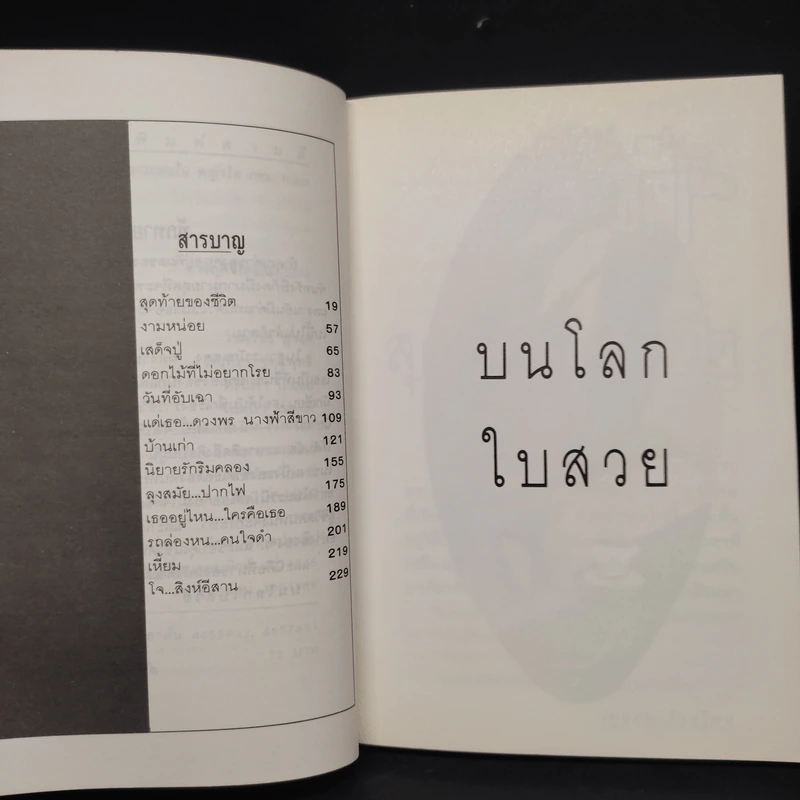 สารบาญ
สุดท้ายของชีวิต 19
งามหน่อย 57
เสด็จปู่ 65
ดอกไม้ที่ไม่อยากโรย 83
วันที่อับเฉา 93
แด่เธอ...ดวงพร นางฟ้าสีขาว 109
บ้านเก่า 121
นิยายรักริมคลอง 155
ลุงสมัย...ปากไฟ 175
เธออยู่ไหน...ใครคือเธอ 189
รถล่องหน...คนใจดำ 201
เหี้ยม 219
โจ...สิงห์อีสาน 229
บนโลก
ใบสวย